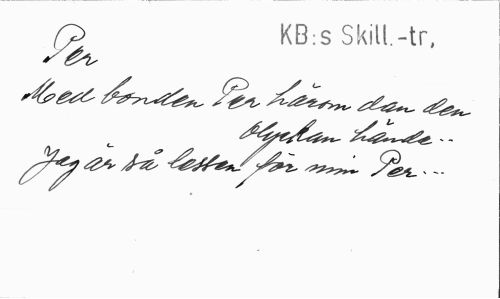 KB:s Skill.-tr,
Per
Med bonden Per härom dan den
olyckan hände..
Jag är så lessen för min Per...